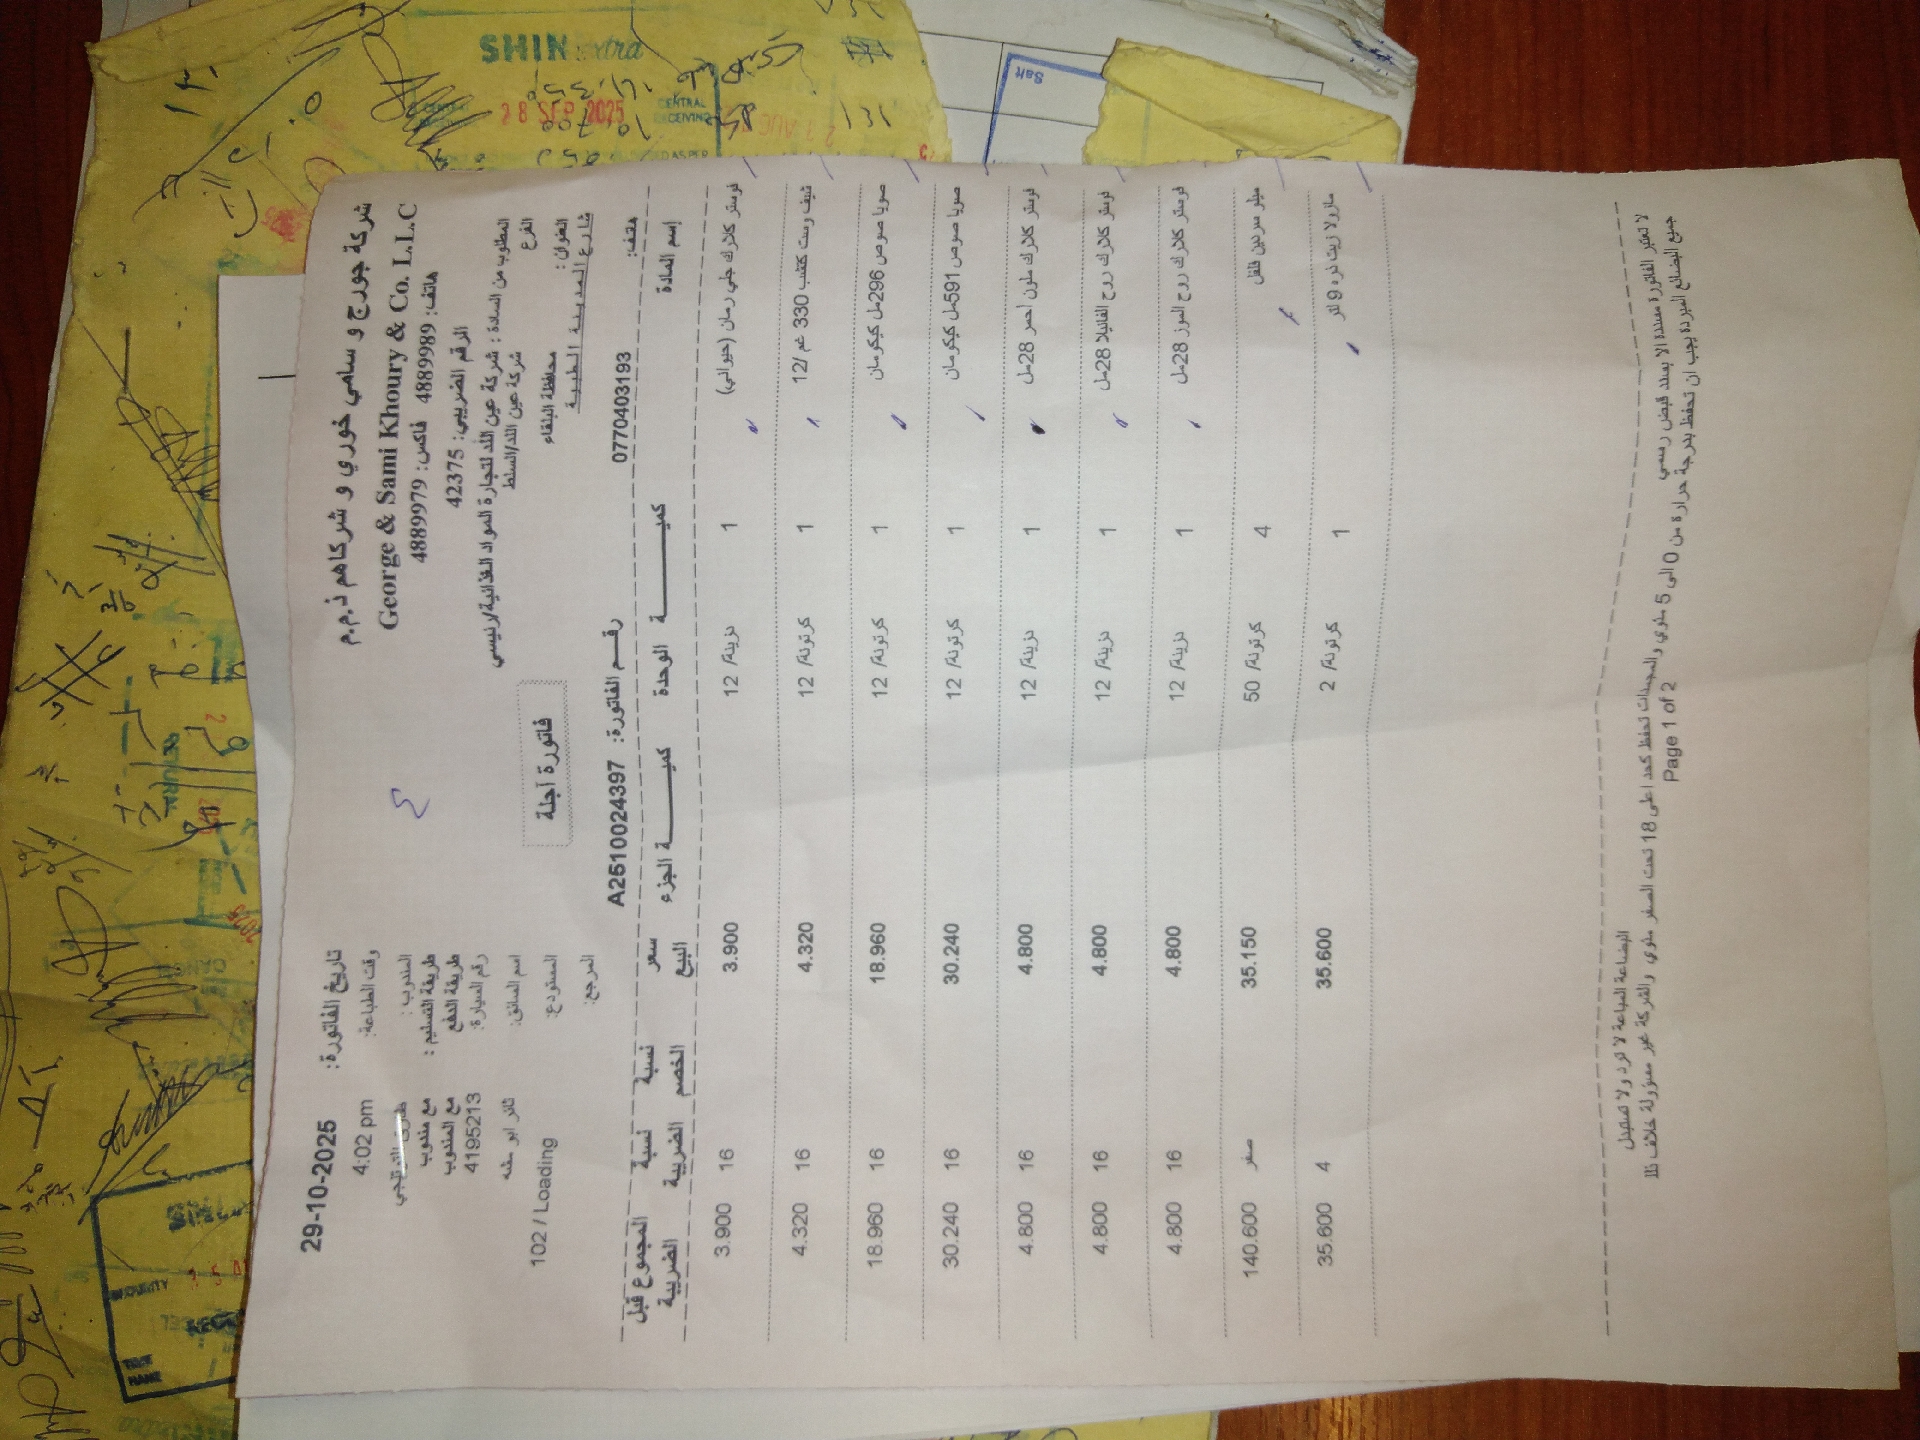 شركة جورج و سامي خوري و شركاهم ذ.م.م
George & Sami Khoury & Co. L.L.C
هاتف: 4889989 فاكس: 4889979
الرقم الضريبي: 42375
تاريخ الفاتورة: 29-10-2025
وقت الطباعة: 4:02 pm
المندوب:
طريقة التسليم: مع مندوب
طريقة الدفع مع المندوب
رقم السيارة: 4195213
اسم السائق: ثائر ابو
المستودع: 102 / Loading
المرجع:
المطلوب من السادة: شركة عين اللد لتجارة المواد الغذائية/رئيسي
الفرع شركة عين اللد/السلط
العنوان: محافظة البلقاء
شارع المدينة الطبية
فاتورة آجلة
هاتف: 0770403193 رقم الفاتورة: A2510024397
إسم المادة كميـــة الوحدة كميـــة الجزء سعر البيع نسبة الخصم نسبة الضريبة المجموع قبل الضريبة
فوستر كلارك جلي رمان (حيواني) 1 دزينة/ 12 3.900 16 3.900
شيف وست كتشب 330 غم /12 1 كرتونة/ 12 4.320 16 4.320
صويا صوص 296مل كيكومان 1 كرتونة/ 12 18.960 16 18.960
صويا صوص 591مل كيكومان 1 كرتونة/ 12 30.240 16 30.240
فوستر كلارك ملون احمر 28مل 1 دزينة/ 12 4.800 16 4.800
فوستر كلارك روح الفانيلا 28مل 1 دزينة/ 12 4.800 16 4.800
فوستر كلارك روح الموز 28مل 1 دزينة/ 12 4.800 16 4.800
ميلو سردين فلفل 4 كرتونة/ 50 35.150 صفر 140.600
مازولا زيت ذره 9 لتر 1 كرتونة/ 2 35.600 4 35.600
لا تعتبر الفاتورة مسددة الا بسند قبض رسمي
البضاعة المباعة لا ترد ولا تستبدل
جميع البضائع المبردة يجب ان تحفظ بدرجة حرارة من 0 الى 5 مئوي والمجمدات تحفظ كحد اعلى 18 تحت الصفر مئوي والشركة غير مسؤولة خلاف ذلك
Page 1 of 2
SHIN extra
28 SEP 2025
CENTRAL
RECEIVING
Salt